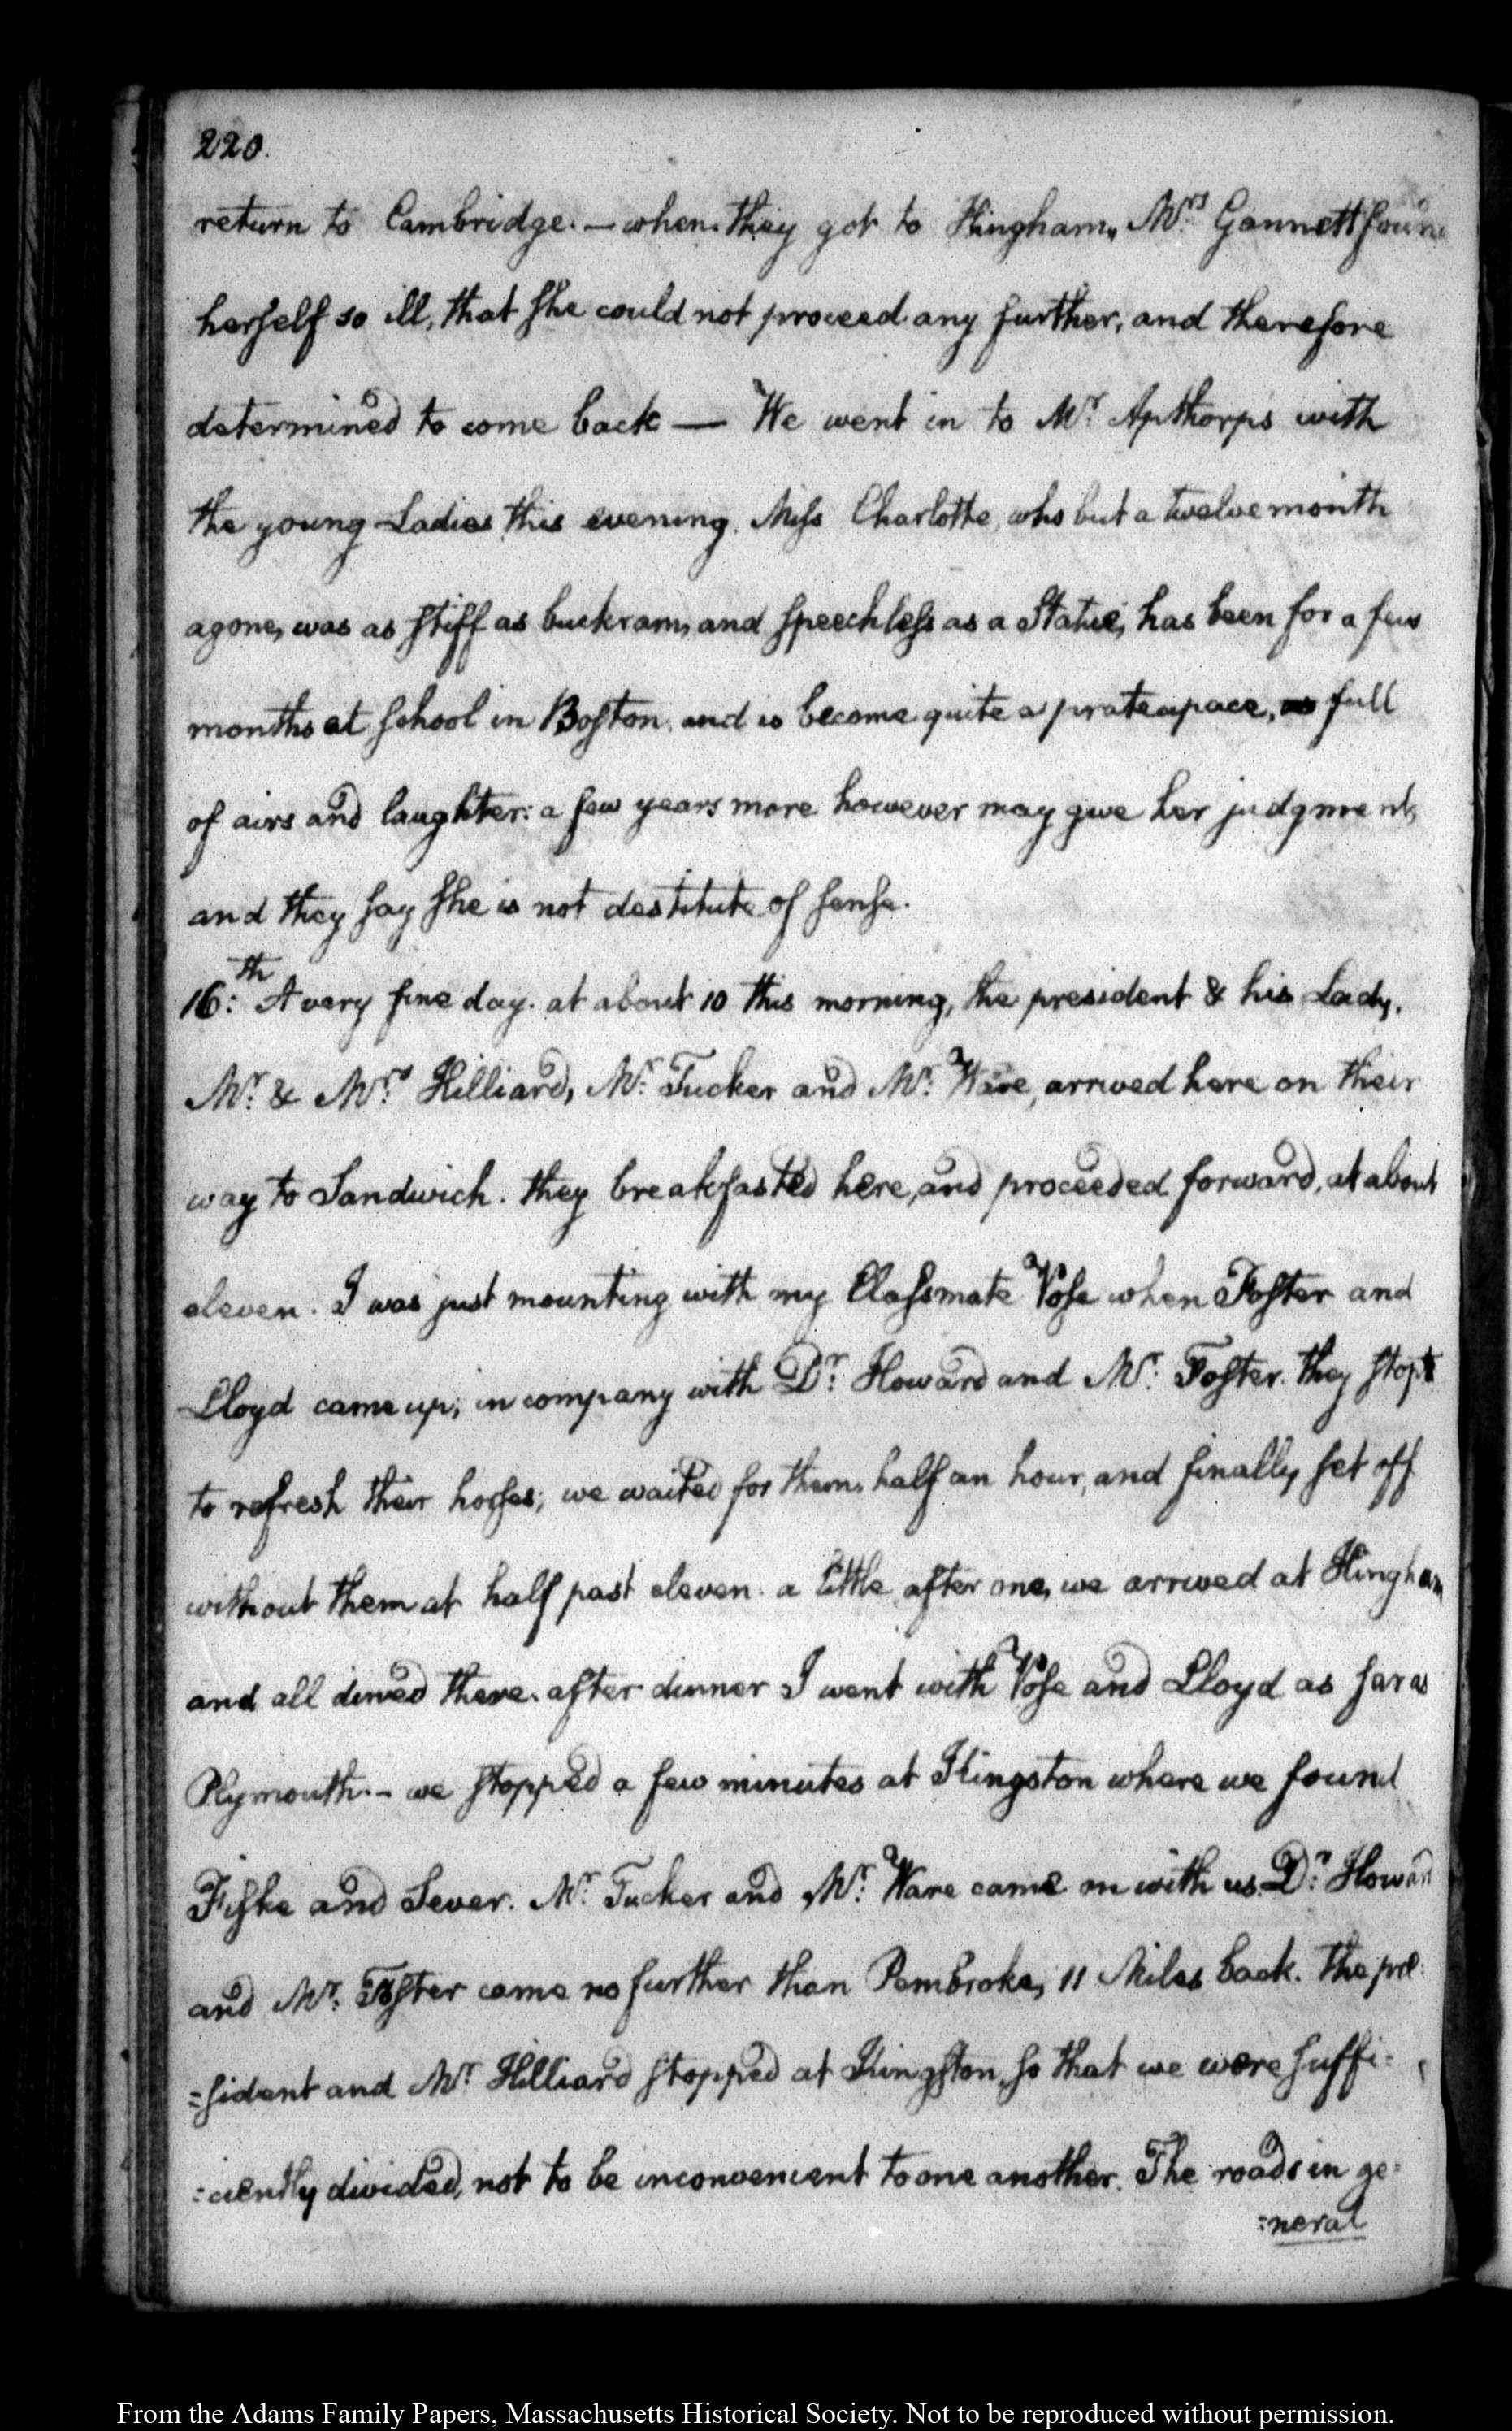 220.
return to Cambridge. — when they got to Hingham, Mrs. Gannett foun
herself so ill, that she could not proceed any further, and therefore
determined to come back — We went in to Mr. Apthorps with
the young Ladies this evening. Miss Charlotte, who but a twelvemonth
agone, was as stiff as buckram, and speechless as a Statue, has been for a few
months at school in Boston, and is become quite a prateapace, full
of airs and laughter: a few years more however may give her judgment,
and they say she is not destitute of sense.
16:th A very fine day. at about 10 this morning, the president & his Lady,
Mr. & Mrs. Hilliard, Mr. Tucker and Mr. Ware, arrived here on their
way to Sandwich. they breakfasted here, and proceeded forward, at about
eleven. I was just mounting with my Classmate Vose when Foster and
Lloyd came up; in company with Dr. Howard and Mr. Foster. they stopt
to refresh their horses; we waited for them half an hour, and finally set off
without them at half past eleven. a little after one, we arrived at Hingham
and all dined there. after dinner I went with Vose and Lloyd as far as
Plymouth. — we stopped a few minutes at Kingston where we found
Fiske and Sever. Mr. Tucker and Mr. Ware came on with us. Dr. Howard
and Mr. Foster came no further than Pembroke, 11 Miles back. The pre:
:sident and Mr. Hilliard stopped at Kingston, so that we were suffi:
:ciently divided, not to be inconvenient to one another. The roads in ge:
:neral
From the Adams Family Papers, Massachusetts Historical Society. Not to be reproduced without permission.